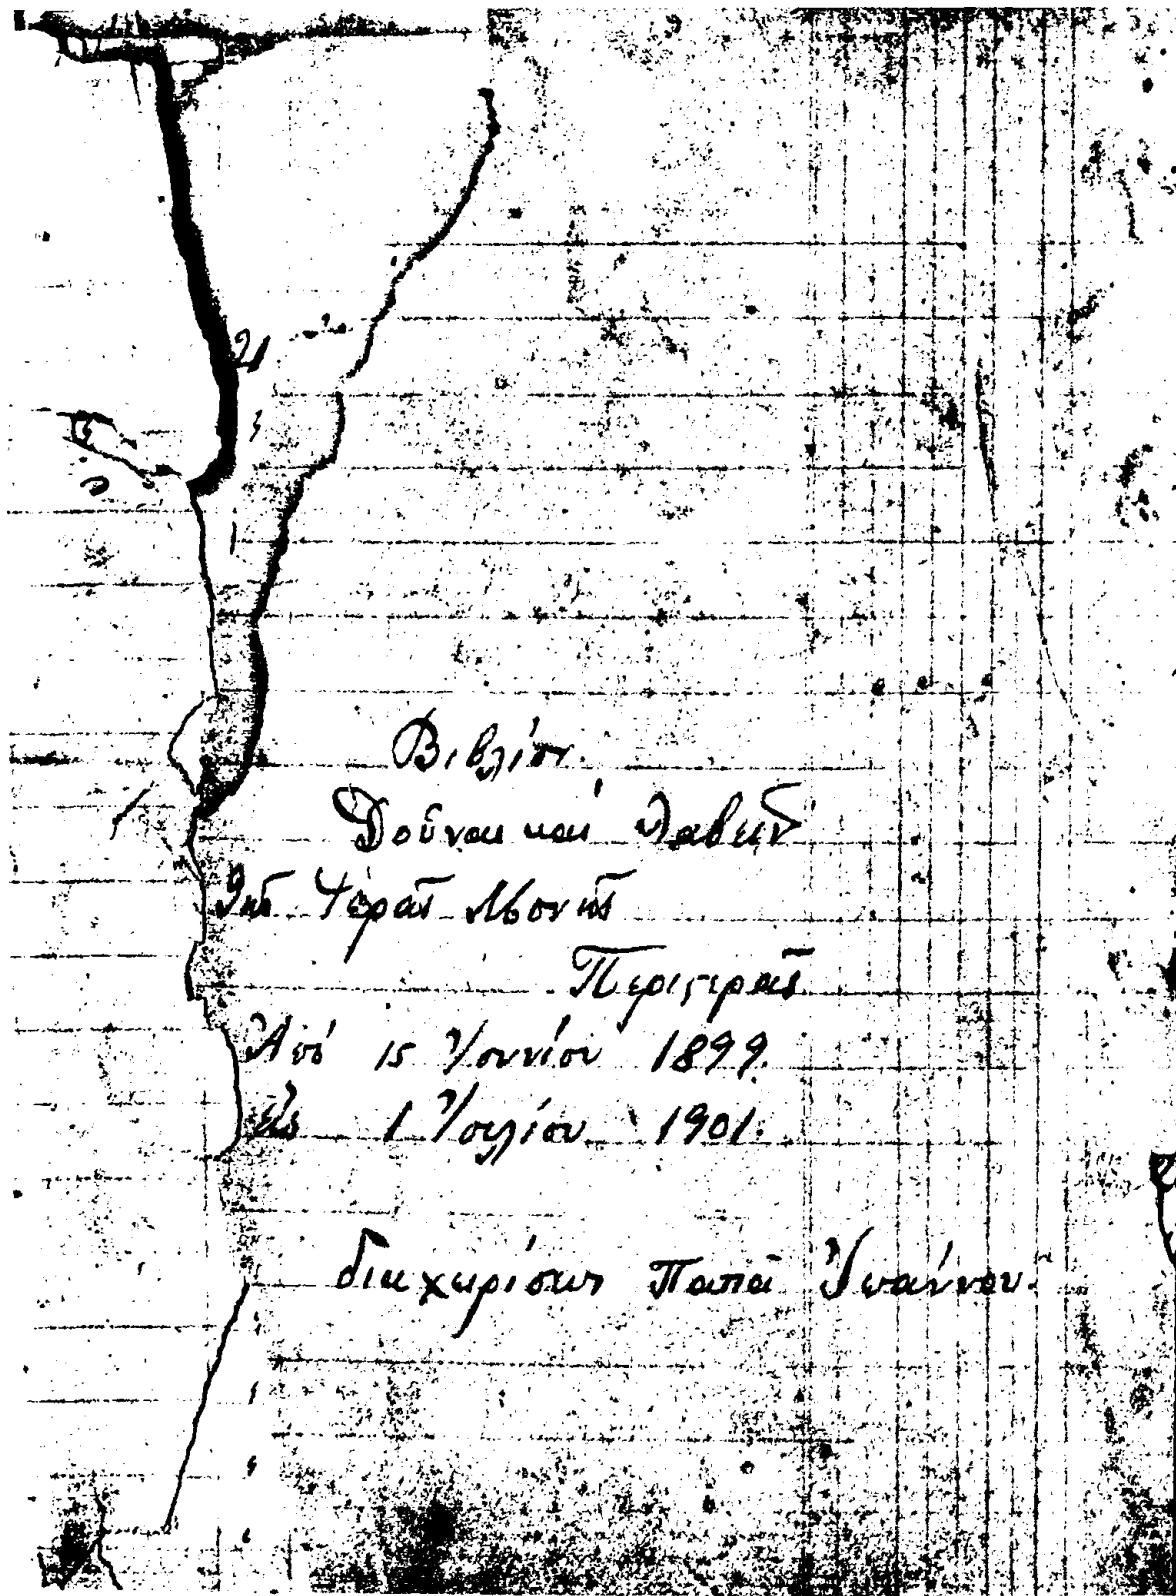 Βιβλίον
Δοῦναι καί λαβεῖν
Τῆς Ἱερᾶς Μονῆς
Περιστερᾶς
Ἀπό 15 Ἰουνίου 1899.
εἰς 1 Ἰουλίου 1901.
διαχειρίσεως Παπᾶ Ἰωάννου.